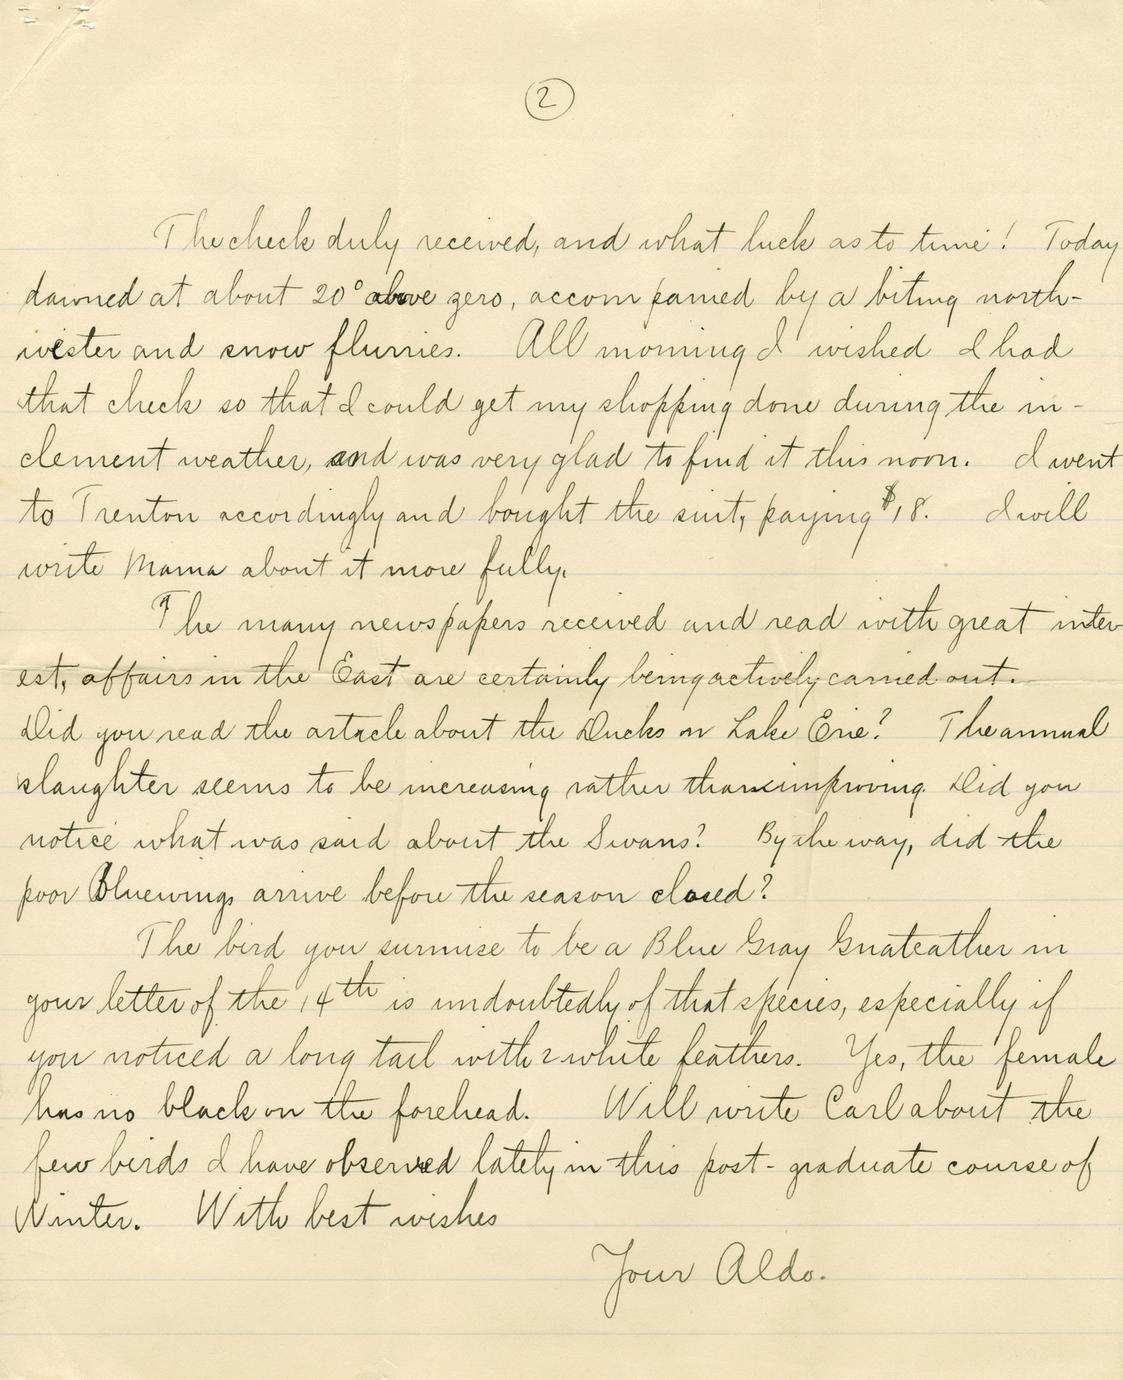 2
The check duly received, and what luck as to time! Today
dawned at about 20° above zero, accompanied by a biting north-
wester and snow flurries. All morning I wished I had
that check so that I could get my shopping done during the in-
clement weather, and was very glad to find it this noon. I went
to Trenton accordingly and bought the suit, paying $18. I will
write Mama about it more fully.
The many newspapers received and read with great inter-
est, affairs in the East are certainly being actively carried out.
Did you read the article about the Ducks on Lake Erie? The annual
slaughter seems to be increasing rather than improving. Did you
notice what was said about the Swans? By the way, did the
poor Bluewings arrive before the season closed?
The bird you surmise to be a Blue Gray Gnateather in
your letter of the 14th is undoubtedly of that species, especially if
you noticed a long tail with 2 white feathers. Yes, the female
has no black on the forehead. Will write Carl about the
few birds I have observed lately in this post-graduate course of
Winter. With best wishes
Your Aldo.